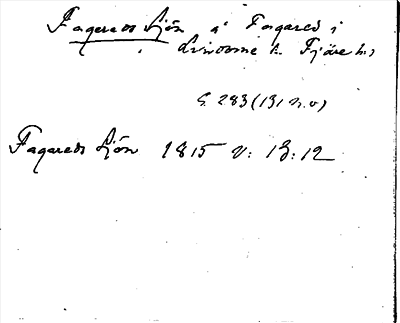 Fagereds Sjön å Fagared i
Lindome s. Fjäre hd
S. 283 (131 n.v)
Fagareds Sjön 1815 V: 13: 12